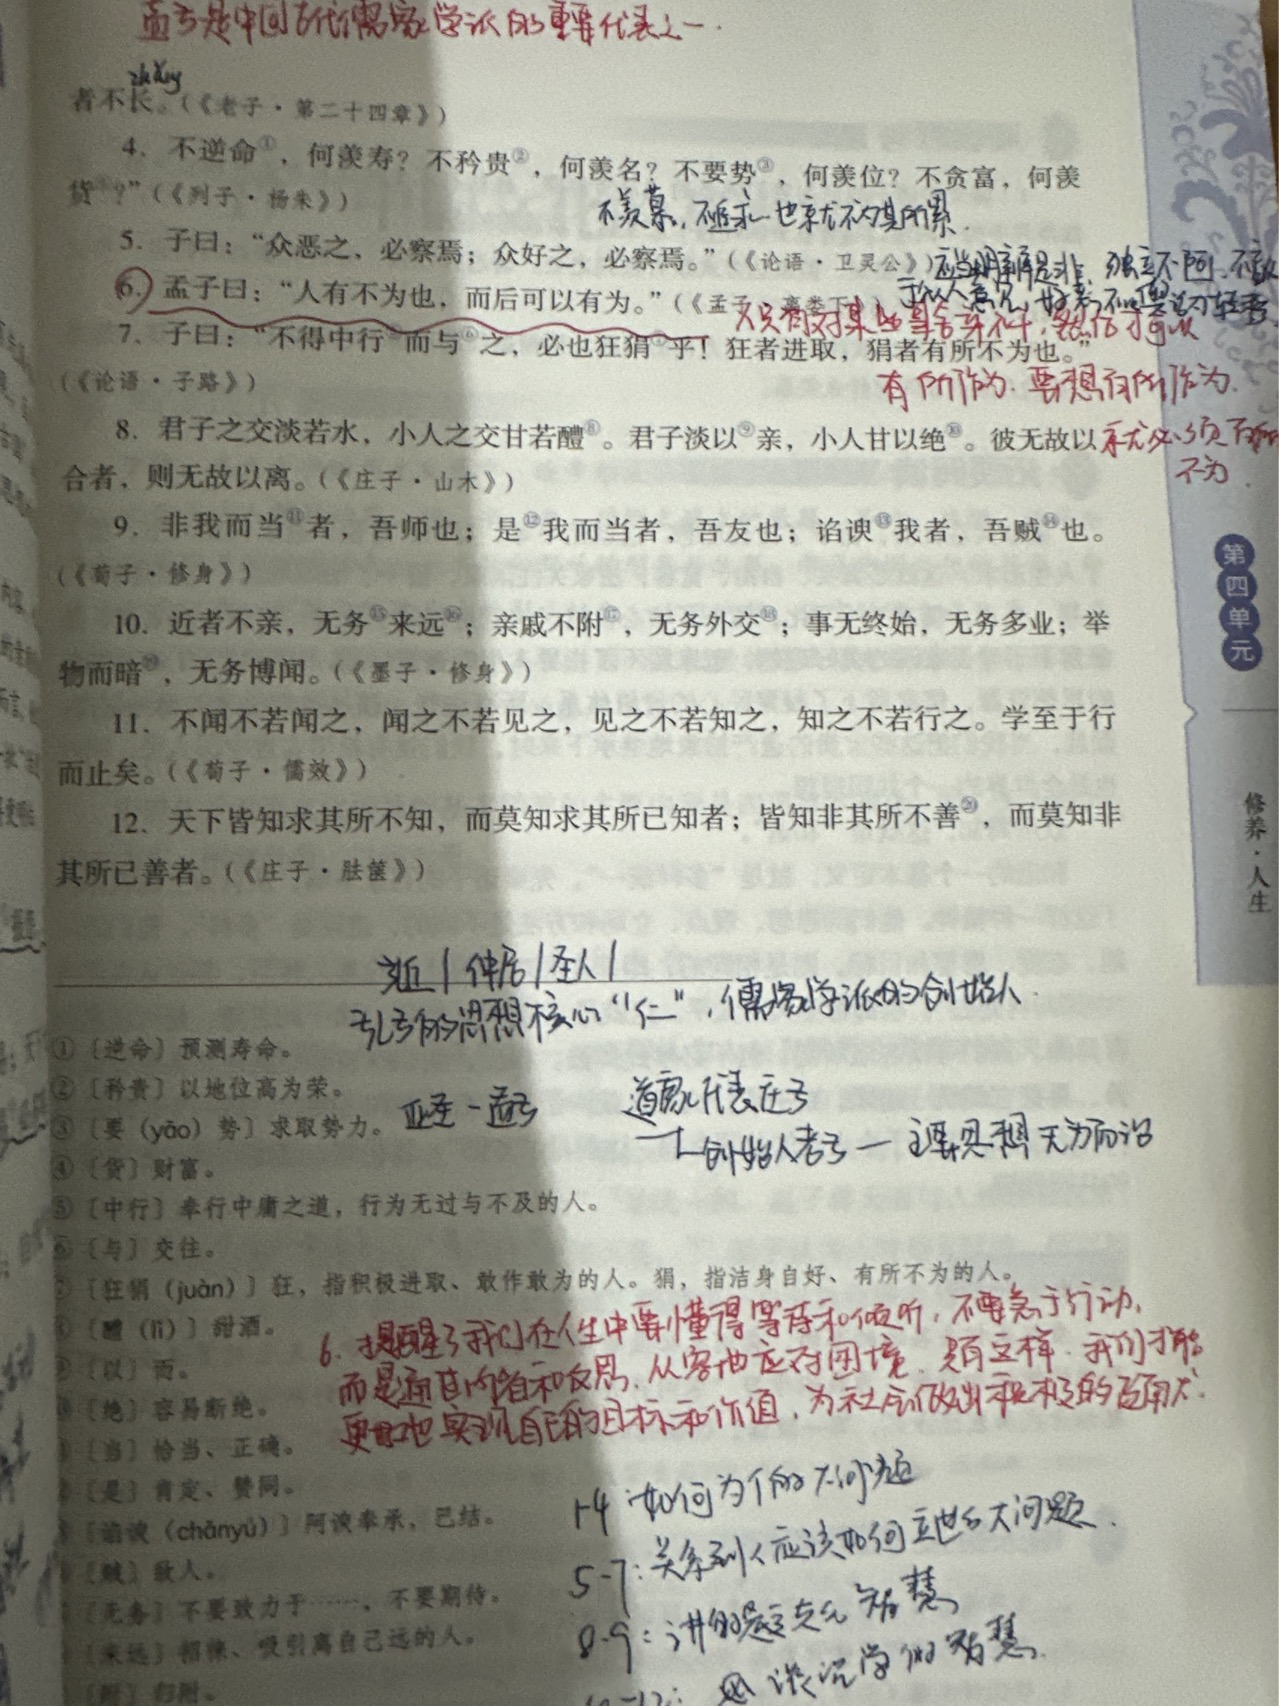 孟子是中国古代儒家学派的重要代表之一.
zhǎng
者不长。(《老子·第二十四章》)
4. 不逆命①，何羡寿？不矜贵②，何羡名？不要势③，何羡位？不贪富，何羡
货④？”(《列子·杨朱》)
不羡慕，不追求 也就不为其所累.
5. 子曰：“众恶之，必察焉；众好之，必察焉。”(《论语·卫灵公》)
应当明辨是非 独立不阿
6. 孟子曰：“人有不为也，而后可以有为。”(《孟子·离娄下》)
人只有对某些事舍弃不干，然后才可以
7. 子曰：“不得中行⑤而与⑥之，必也狂狷⑦乎！狂者进取，狷者有所不为也。”
(《论语·子路》)
有所作为. 要想有所作为.
8. 君子之交淡若水，小人之交甘若醴⑧。君子淡以⑨亲，小人甘以绝⑩。彼无故以
就必须有所
不为.
合者，则无故以离。(《庄子·山木》)
9. 非我而当⑪者，吾师也；是⑫我而当者，吾友也；谄谀⑬我者，吾贼⑭也。
(《荀子·修身》)
10. 近者不亲，无务⑮来远⑯；亲戚不附⑰，无务外交⑱；事无终始，无务多业；举
物而暗⑲，无务博闻。(《墨子·修身》)
11. 不闻不若闻之，闻之不若见之，见之不若知之，知之不若行之。学至于行
而止矣。(《荀子·儒效》)
12. 天下皆知求其所不知，而莫知求其所已知者；皆知非其所不善⑳，而莫知非
其所已善者。(《庄子·胠箧》)
第四单元
修养·人生
仲尼|圣人|
孔子的思想核心“仁”，儒家学派的创始人.
①〔逆命〕预测寿命。
②〔矜贵〕以地位高为荣。
③〔要（yāo）势〕求取势力。
亚圣-孟子
道家代表庄子
创始人老子 — 主要思想 无为而治
④〔货〕财富。
⑤〔中行〕奉行中庸之道，行为无过与不及的人。
⑥〔与〕交往。
⑦〔狂狷（juàn）〕狂，指积极进取、敢作敢为的人。狷，指洁身自好、有所不为的人。
⑧〔醴（lǐ）〕甜酒。
⑨〔以〕而。
⑩〔绝〕容易断绝。
⑪〔当〕恰当、正确。
⑫〔是〕肯定、赞同。
⑬〔谄谀（chǎnyú）〕阿谀奉承，巴结。
⑭〔贼〕敌人。
〔无务〕不要致力于……，不要期待。
〔来远〕招徕、吸引离自己远的人。
〔附〕归附。
6. 提醒了我们在人生中要懂得等待和倾听，不要急于行动，
而是通过内省和反思，从容地应对困境. 只有这样. 我们才能
更好地实现自己的目标和价值，为社会做出积极的贡献.
1-4:如何为人的大问题
5-7:关系到人应该如何立世的大问题.
8-9:讲的是交友智慧
10-12: 谈论学习的智慧.